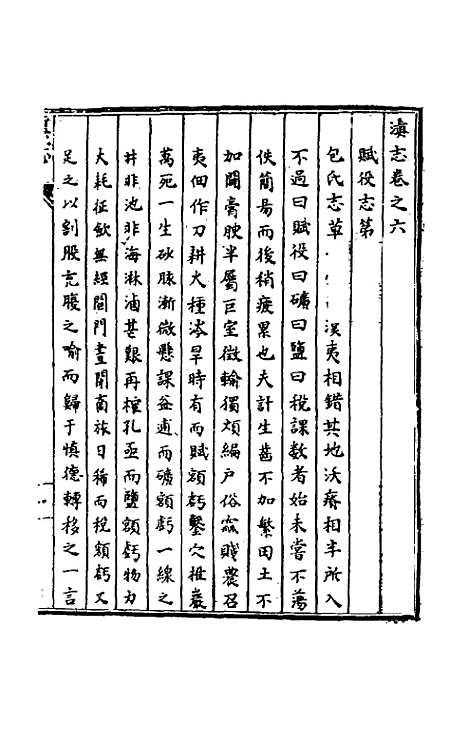 滇志卷之六
賦役志第
包氏志草 漢夷相錯其地沃瘠相半所入
不過曰賦役曰礦曰鹽曰稅課數者始未嘗不蕩
佚簡易而後稍疲累也夫計生齒不加繁田土不
加闢膏腴半屬巨室徵輸獨煩編戶俗窳賤農召
夷佃作刀耕火種澇旱時有而賦額虧鑿穴椎巖
萬死一生砂脉漸微懸課益逋而礦額虧一線之
井非池非海淋滷甚艱再榷孔亟而鹽額虧物力
大耗征歛無經閭門晝閉商旅日稀而稅額虧又
足之以割股充腹之喻而歸于慎德轉移之一言